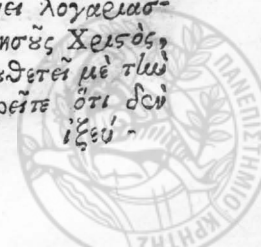 λογαριασ-
ησοῦς Χριστὸς,
θετεῖ μὲ τὴν
ρεῖτε ὅτι δὲν
ἰξεύ -
ΠΑΝΕΠΙΣΤΗΜΙΟ ΚΡΗΤΗΣ